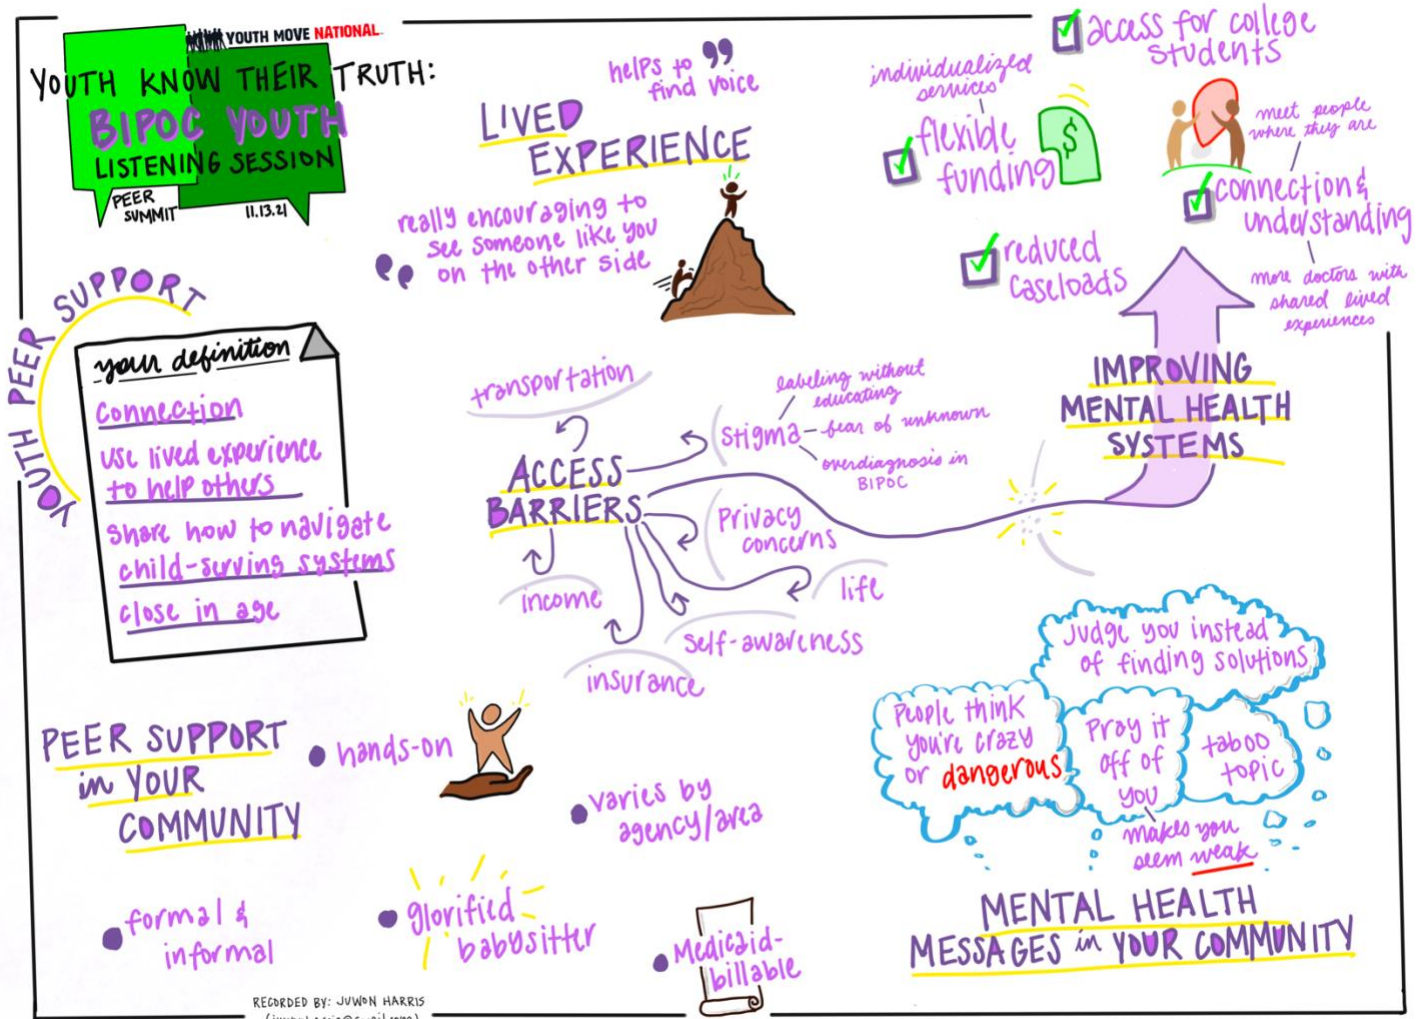 YOUTH MOVE NATIONAL
YOUTH KNOW THEIR TRUTH:
BIPOC YOUTH
LISTENING SESSION
PEER
SUMMIT
11.13.21
LIVED
EXPERIENCE
helps to
find voice
”
“
really encouraging to
see someone like you
on the other side
access for college
students
individualized
services
flexible
funding
$
meet people
where they are
connection &
understanding
more doctors with
shared lived
experiences
reduced
caseloads
IMPROVING
MENTAL HEALTH
SYSTEMS
YOUTH PEER SUPPORT
your definition
connection
use lived experience
to help others
share how to navigate
child-serving systems
close in age
ACCESS
BARRIERS
transportation
stigma
labeling without
educating
fear of unknown
overdiagnosis in
BIPOC
privacy
concerns
life
self-awareness
insurance
income
PEER SUPPORT
in YOUR
COMMUNITY
hands-on
varies by
agency/area
formal &
informal
glorified
babysitter
Medicaid-
billable
Judge you instead
of finding solutions
People think
you're crazy
or dangerous
Pray it
off of
you
makes you
seem weak
taboo
topic
MENTAL HEALTH
MESSAGES in YOUR COMMUNITY
RECORDED BY: JUWON HARRIS